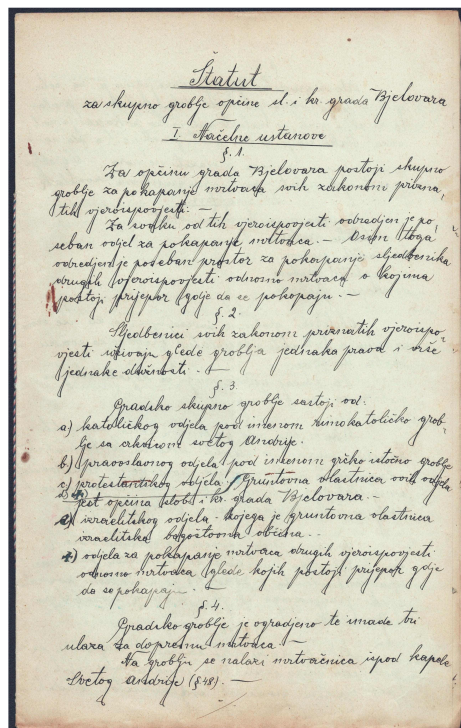 Štatut
za skupno groblje općine sl. i kr. grada Bjelovara
I. Načelne ustanove
§. 1.
Za općinu grada Bjelovara postoji skupno
groblje za pokapanje mrtvaca svih zakonom prizna,
tih vjeroispovjesti. —
Za svaku od tih vjeroispovjesti odredjen je po,
seban odjel za pokapanje mrtvaca. — Osim toga
odredjen je poseban prostor za pokapanje sljedbenika
drugih vjeroispovjesti odnosno mrtvaca o kojima
postoji prijepor gdje da se pokopaju. —
§. 2.
Sljedbenici svih zakonom priznatih vjeroispo-
vjesti uživaju glede groblja jednaka prava i vrše
jednake dužnosti. —
§. 3.
Gradsko skupno groblje sastoji od:
a) katoličkog odjela pod imenom rimokatoličko grob-
lje sa crkvicom svetog Andrije.
b) pravoslavnog odjela pod imenom grčko istočno groblje
c) protestantskog odjela. Gruntovna vlastnica ovih odjela
jest općina slob. i kr. grada Bjelovara. —
d) izraelitskog odjela kojega je gruntovna vlastnica
izraelitska bogoštovna općina. —
odjela za pokapanje mrtvaca drugih vjeroispovjesti
odnosno mrtvaca glede kojih postoji prijepor gdje
da se pokapaju. —
§. 4.
Gradsko groblje je ogradjeno te imade tri
ulaza za dopremu mrtvaca. —
Na groblju se nalazi mrtvačnica ispod kapele
Svetog Andrije (§ 48). —